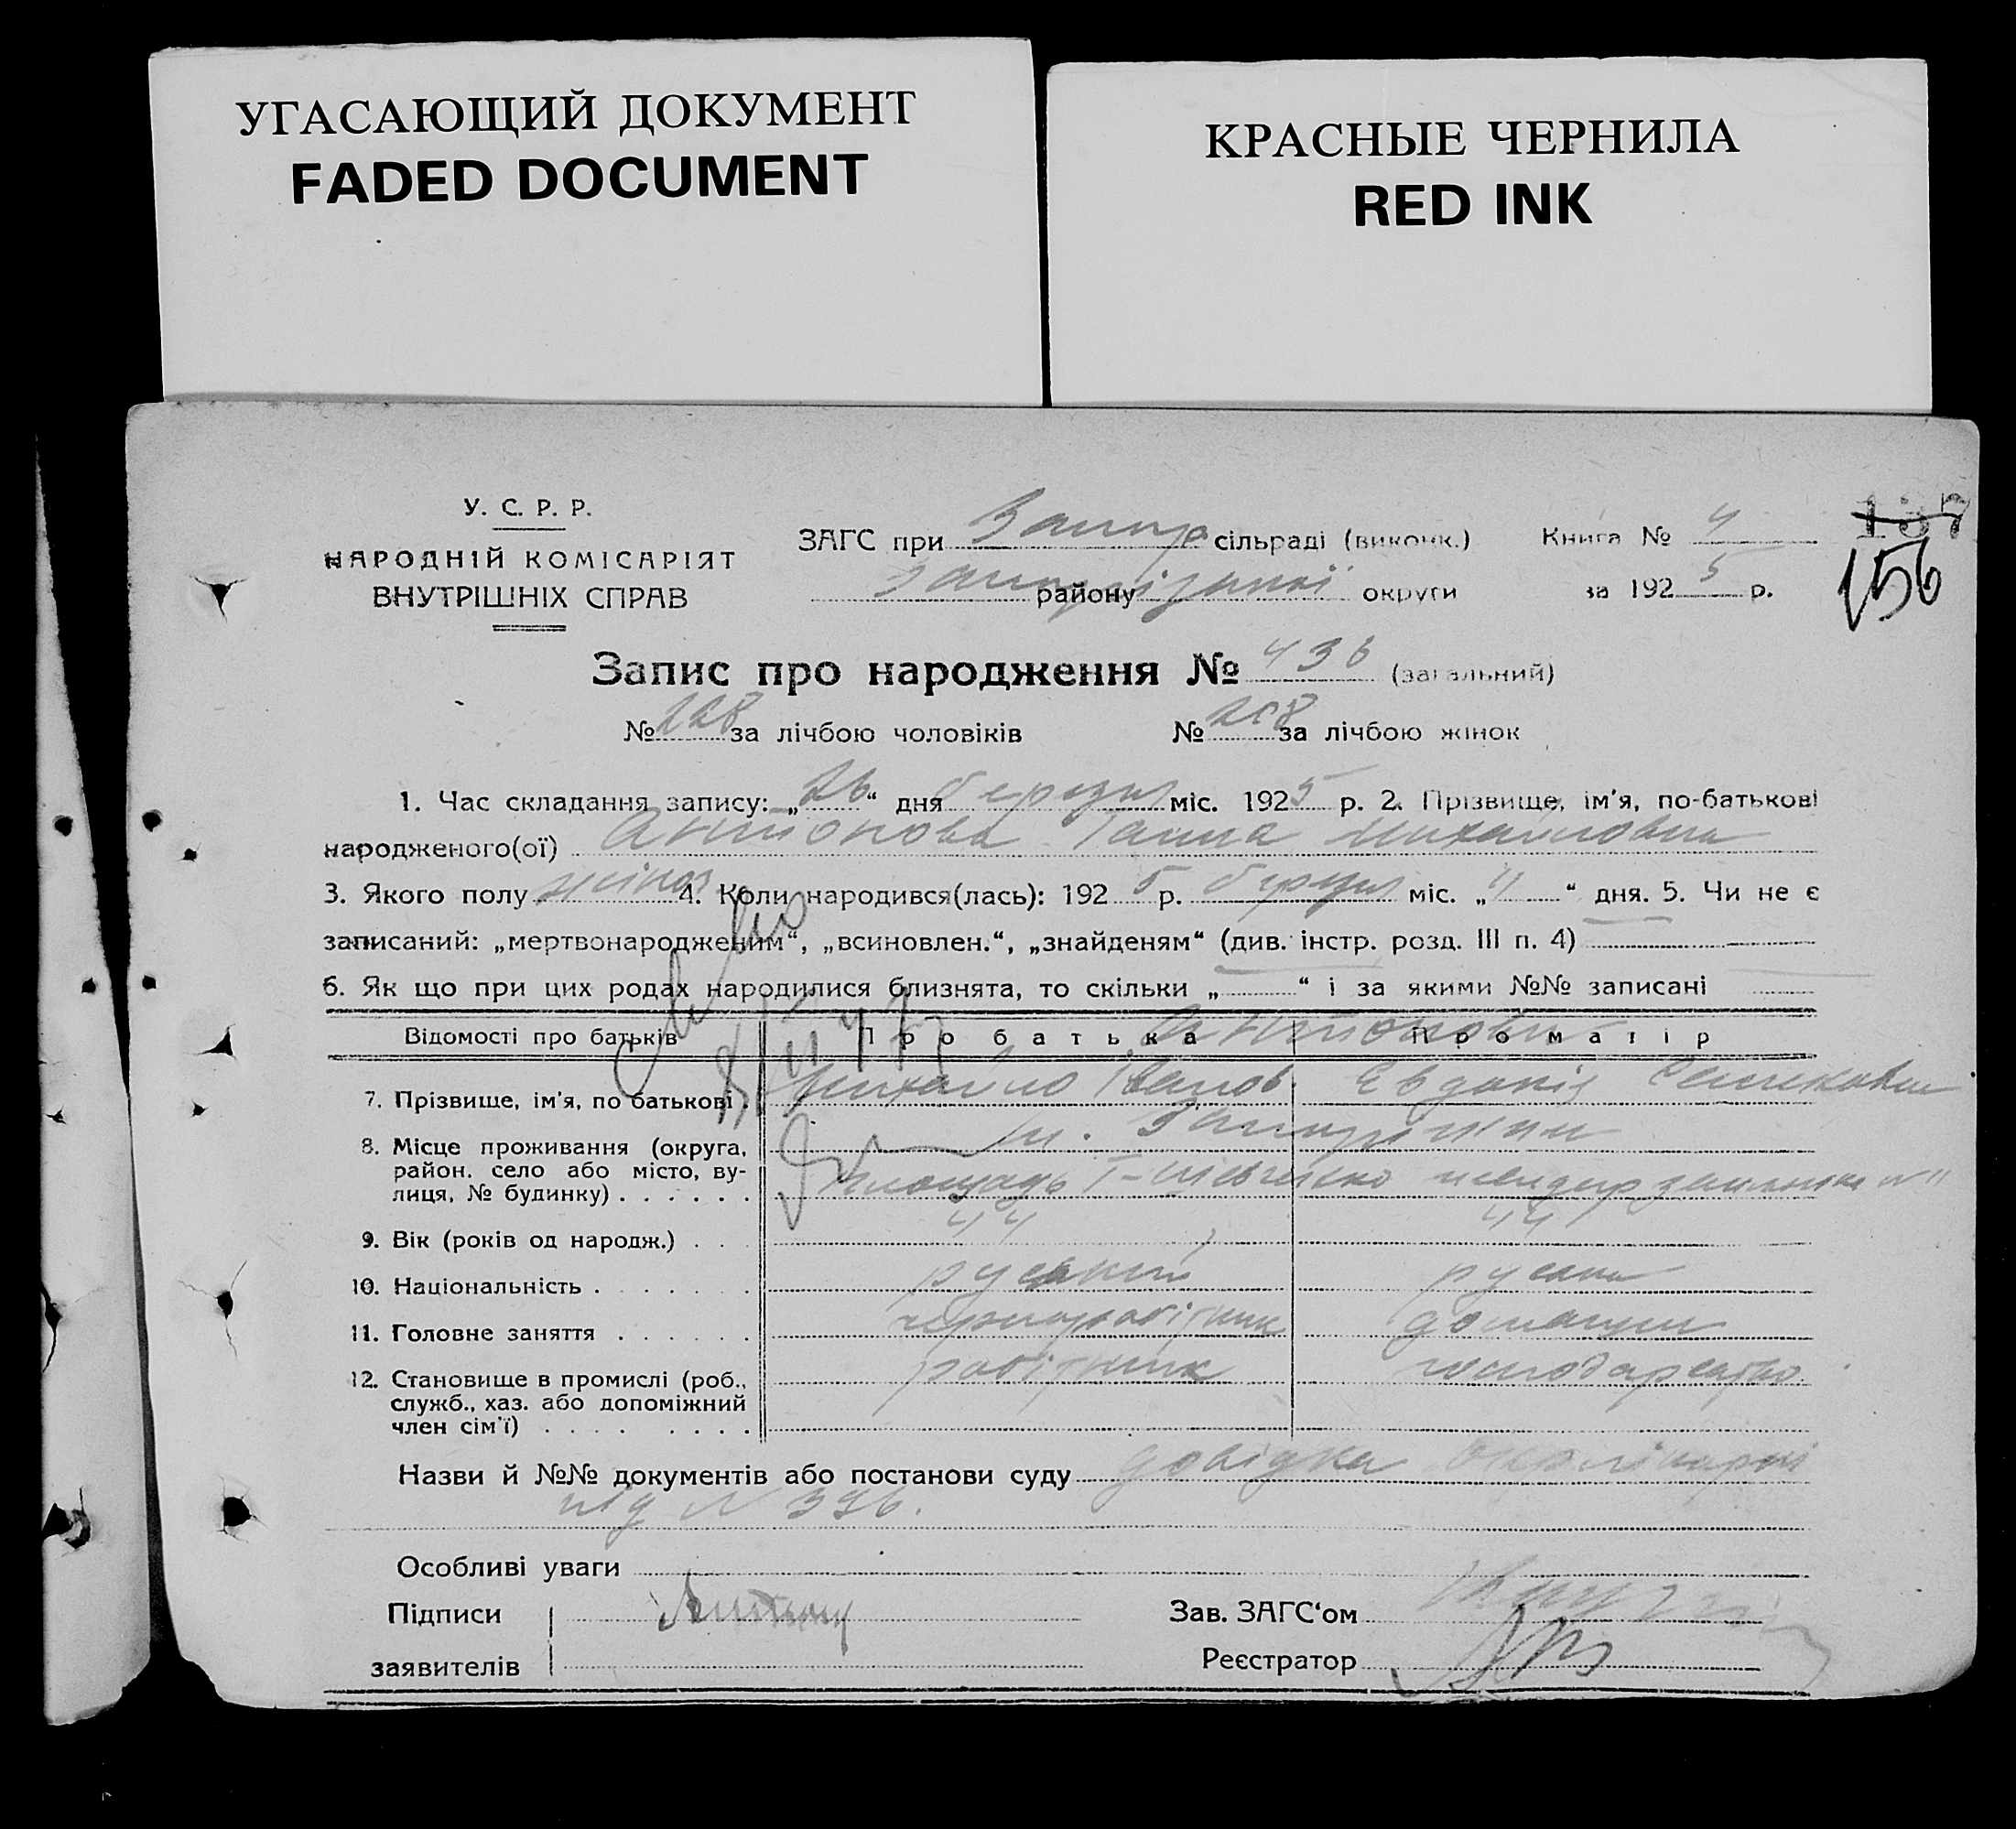 УГАСАЮЩИЙ ДОКУМЕНТ
FADED DOCUMENT
КРАСНЫЕ ЧЕРНИЛА
RED INK
У. С. Р. Р.
НАРОДНІЙ КОМІСАРІЯТ
ВНУТРІШНІХ СПРАВ
ЗАГС при Запор сільраді (виконк.)
району округи
Книга № 4
за 1925 р.
137
156
Запис про народження № 436 (загальний)
№ 228 за лічбою чоловіків № 208 за лічбою жінок
1. Час складання запису: „26“ дня березня міс. 1925 р. 2. Прізвище, ім'я, по-батькові
народженого(ої) Антонова Ганна Михайловна
3. Якого полу жіноч 4. Коли народився(лась): 1925 р. березня міс. „4“ дня. 5. Чи не є
записаний: „мертвонародженим“, „всиновлен.“, „знайденям“ (див. інстр. розд. III п. 4)
6. Як що при цих родах народилися близнята, то скільки „ “ і за якими №№ записані
Відомості про батьків Про батька Про матір
Антонови
7. Прізвище, ім'я, по батькові Михайло Іванов Евдокія
8. Місце проживання (округа, район, село або місто, вулиця, № будинку) м. Запоріжжя
площадь Т-Шевченко
9. Вік (років од народж.) 44 44
10. Національність руський руська
11. Головне заняття чорноробітник домашнє
12. Становище в промислі (роб., служб., хаз. або допоміжний член сім'ї) робітник господарство
Назви й №№ документів або постанови суду довідка
під N 396.
Особливі уваги
Підписи
заявителів
Зав. ЗАГС'ом
Реєстратор